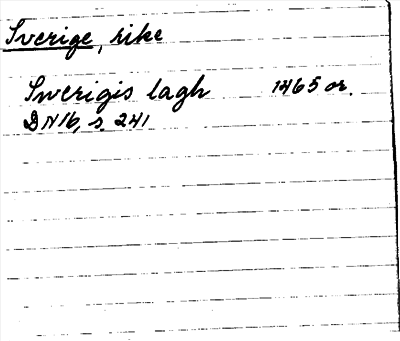 Sverige, rike
Swerigis lagh 1465 or.
DN 16, s. 241